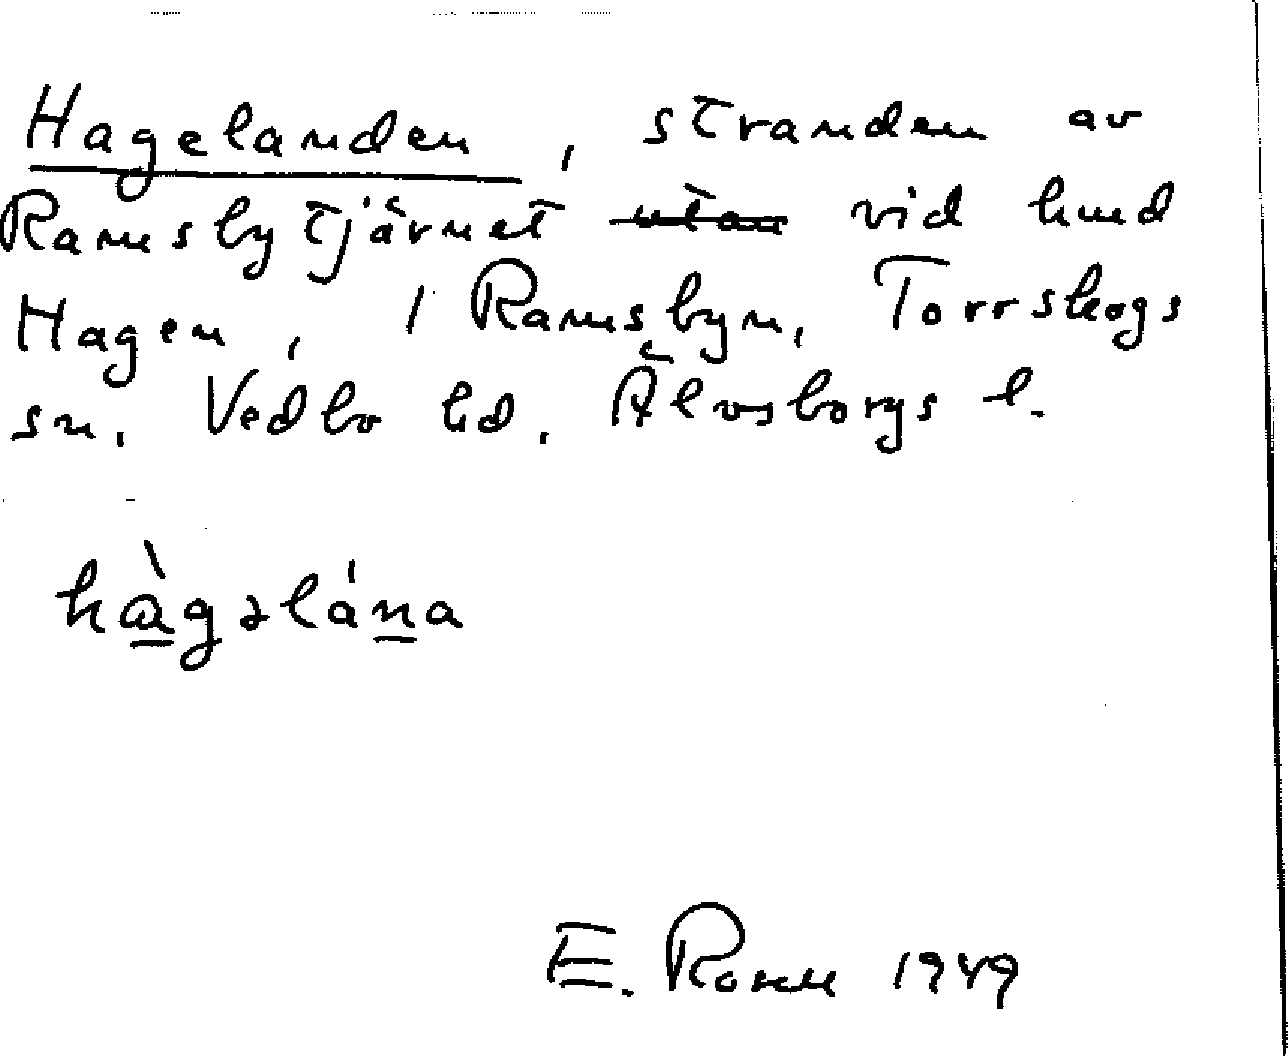 Hagelanden, stranden av
Ramsbytjärnet utan vid hmd
Hagen, i Ramsbyn, Torrskogs
sn, Vedbo hd, Älvsborgs l.
hàgəlána
E. 1949